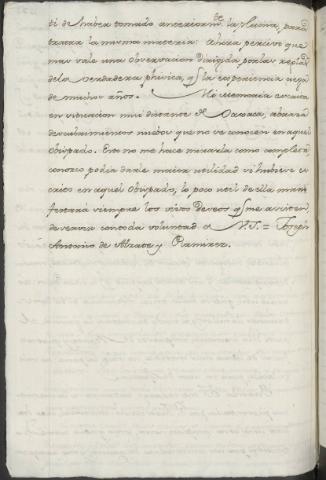 ti de haber tomado anteriormte. la pluma, para
tratar la misma materia: Ahora percivo que
mas vale una observacion dirigida por las reglas
de la verdadera phisica, qe. la experiencia ciega
de muchos años. Mi memoria escrita
en situacion mui distante de Oaxaca, abrazará
descubrimientos nuebos que no se conocen en aquel
Obispado. Esto no me hace mirarla como completa
conozco podia darle maior utilidad si hubiera es
crito en aquel Obispado, lo poco util de ella mani
festará siempre los vivos deseos qe. me asisten,
de servir con toda voluntad a V.S. = Joseph
Antonio de Alzate y Ramirez.